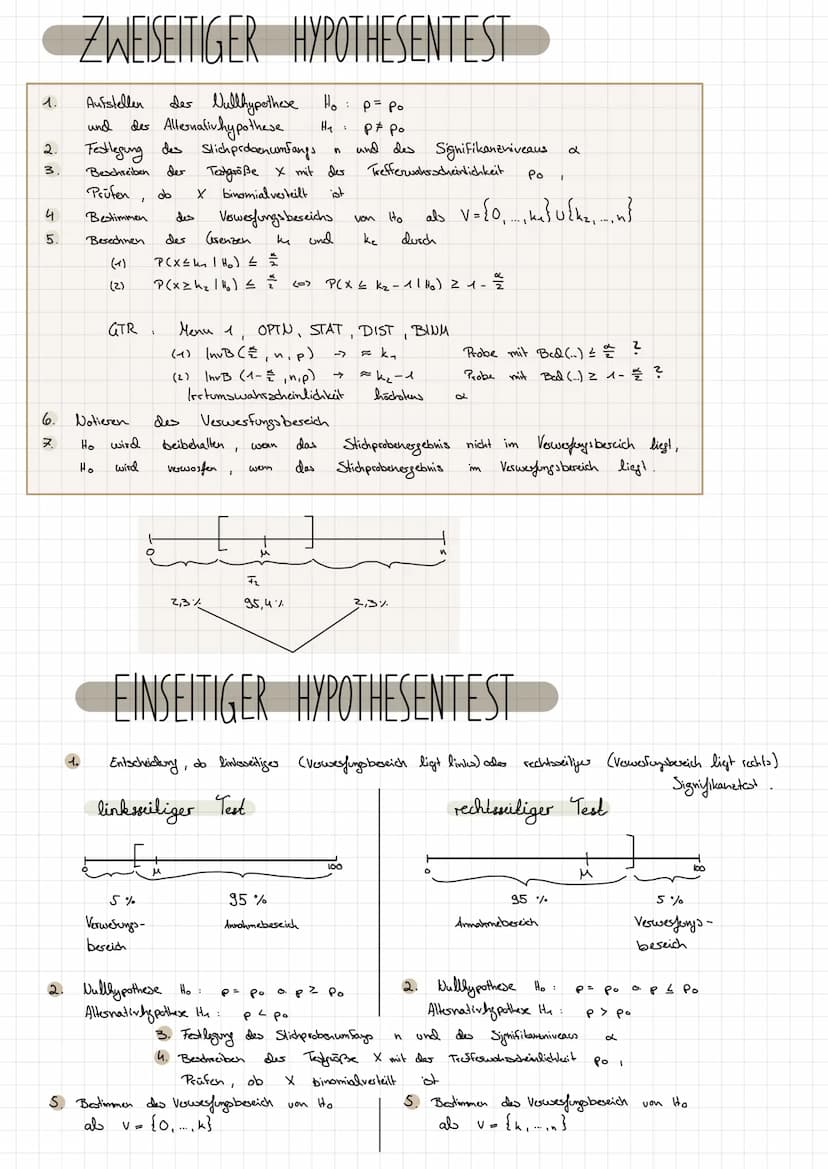 ZWEISEITIGER HYPOTHESENTEST
1. Aufstellen der Nullhypothese H₀ : p = p₀
und der Alternativhypothese H₁ : p ≠ p₀
2. Festlegung des Stichprobenumfangs n und des Signifikanzniveaus α
3. Beschreiben der Testgröße X mit der Trefferwahrscheinlichkeit p₀ ,
Prüfen, ob X binomialverteilt ist
4 Bestimmen des Verwerfungsbereichs von H₀ als V = {0, ..., k₁} ∪ {k₂, ..., n}
5. Berechnen der Grenzen k₁ und k₂ durch
(1) P(X ≤ k₁ | H₀) ≤ α/2
(2) P(X ≥ k₂ | H₀) ≤ α/2 <=> P(X ≤ k₂ - 1 | H₀) ≥ 1 - α/2
GTR : Menu 1, OPTN, STAT, DIST, BINM
(1) InvB(α/2, n, p) → ≈ k₁ Probe mit Bcd(..) ≤ α/2 ?
(2) InvB (1-α/2, n,p) → ≈ k₂-1 Probe mit Bcd(..) ≥ 1 - α/2 ?
Irrtumswahrscheinlichkeit höchstens α
6. Notieren des Verwerfungsbereich
7. H₀ wird beibehalten, wenn das Stichprobenergebnis nicht im Verwerfungsbereich liegt,
H₀ wird verworfen, wenn das Stichprobenergebnis im Verwerfungsbereich liegt.
0 μ n
2,3% 95,4% 2,3%
EINSEITIGER HYPOTHESENTEST
1. Entscheidung, ob linksseitiger (Verwerfungsbereich ligt links) oder rechtsseitiger (Verwerfungsbereich ligt rechts)
Signifikanztest.
linksseitiger Test
0 μ 100
5% 95%
Verwerfungs- Annahmebereich
bereich
rechtsseitiger Test
0 μ 100
95% 5%
Annahmebereich Verwerfungs-
bereich
2. Nullhypothese H₀ : p = p₀ o. p ≥ p₀
Alternativhypothese H₁ : p < p₀
2. Nullhypothese H₀ : p = p₀ o. p ≤ p₀
Alternativhypothese H₁ : p > p₀
3. Festlegung des Stichprobenumfangs n und des Signifikanzniveaus α
4. Beschreiben der Testgröße X mit der Trefferwahrscheinlichkeit p₀ ,
Prüfen, ob X binomialverteilt ist
5. Bestimmen des Verwerfungsbereich von H₀
als V = {0, ..., k}
5. Bestimmen des Verwerfungsbereich von H₀
als V = {k, ..., n}